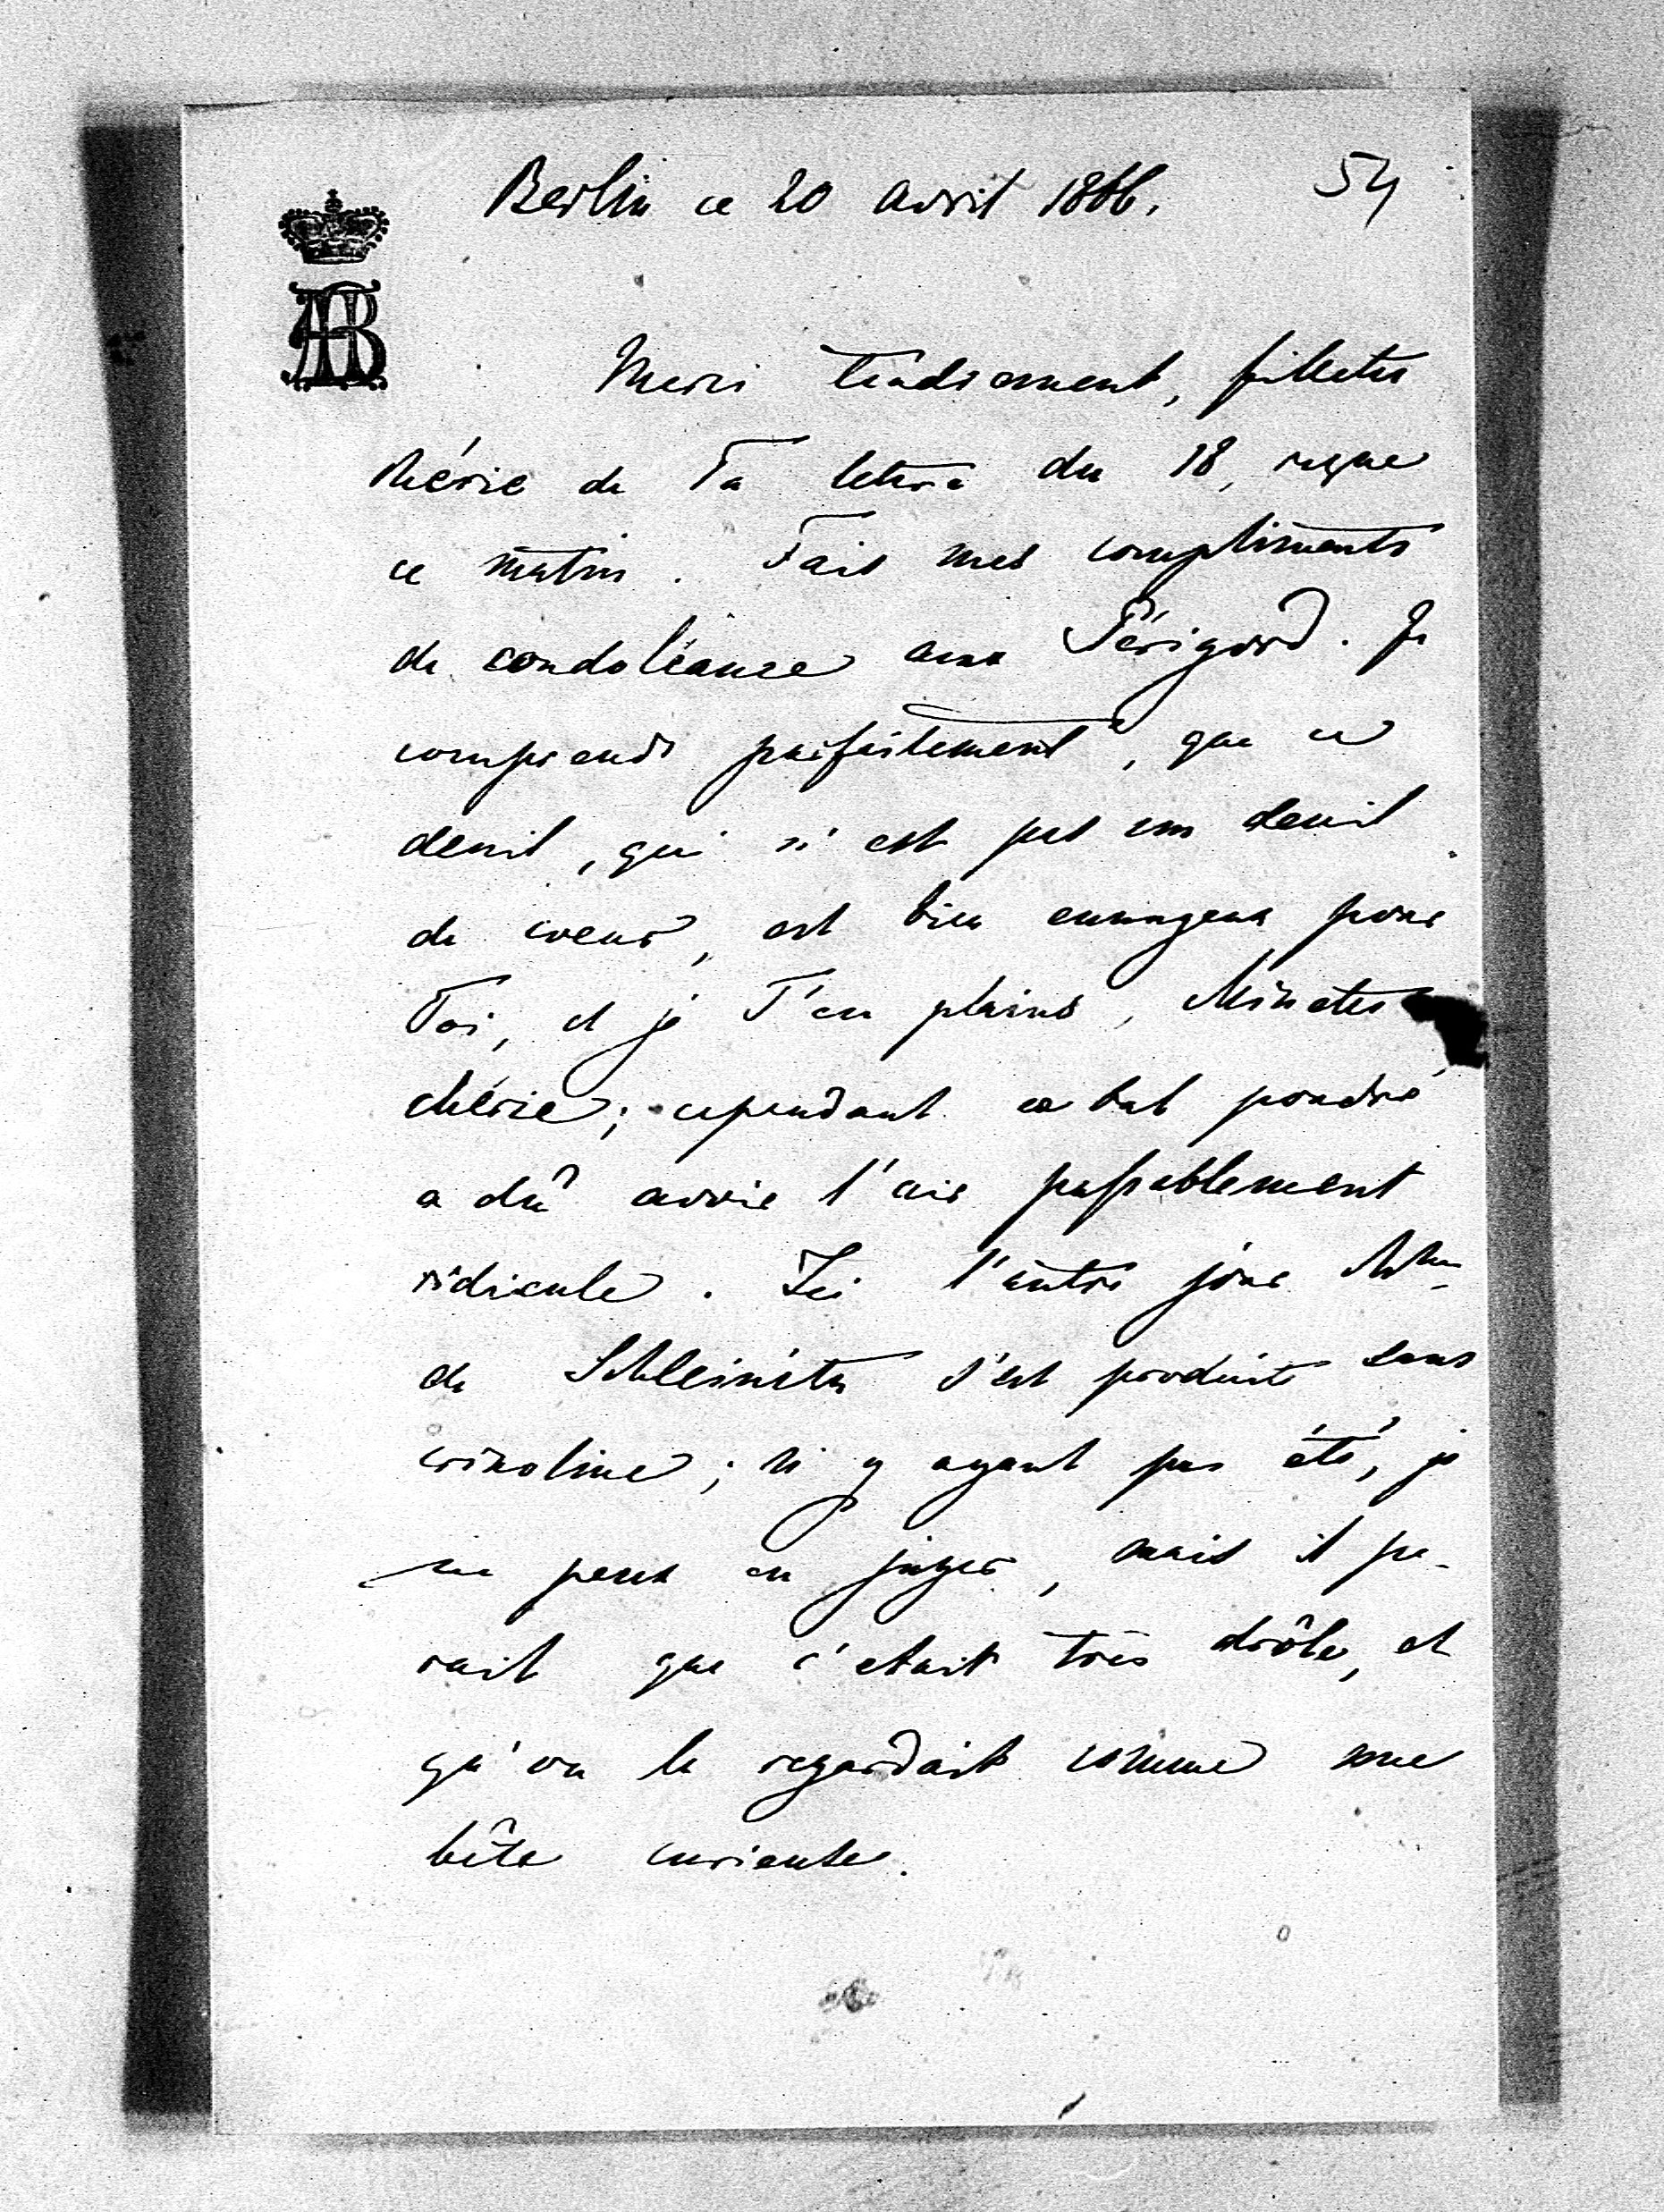 Berlin ce 20 avril 1866.
54
Merci tendrement, fillette
chérie de Ta lettre du 18, reçue
ce matin. Fais mes compliments
de condoléance aux Périgord. Je
comprends parfaitement, que ce
deuil, qui n'est pas un deuil
de coeur, est bien ennuyeux pour
Toi, et je T'en plains, Minette
chérie; cependant ce bal poudré
a dû avoir l'air passablement
ridicule. Ici l'autre jour Mme
de Schleinitz s'est produite sans
crinoline; n'y ayant pas été, je
ne peux en juger, mais il pa-
rait que c'etait très drôle, et
qu'on la regardait comme une
bête curieuse.